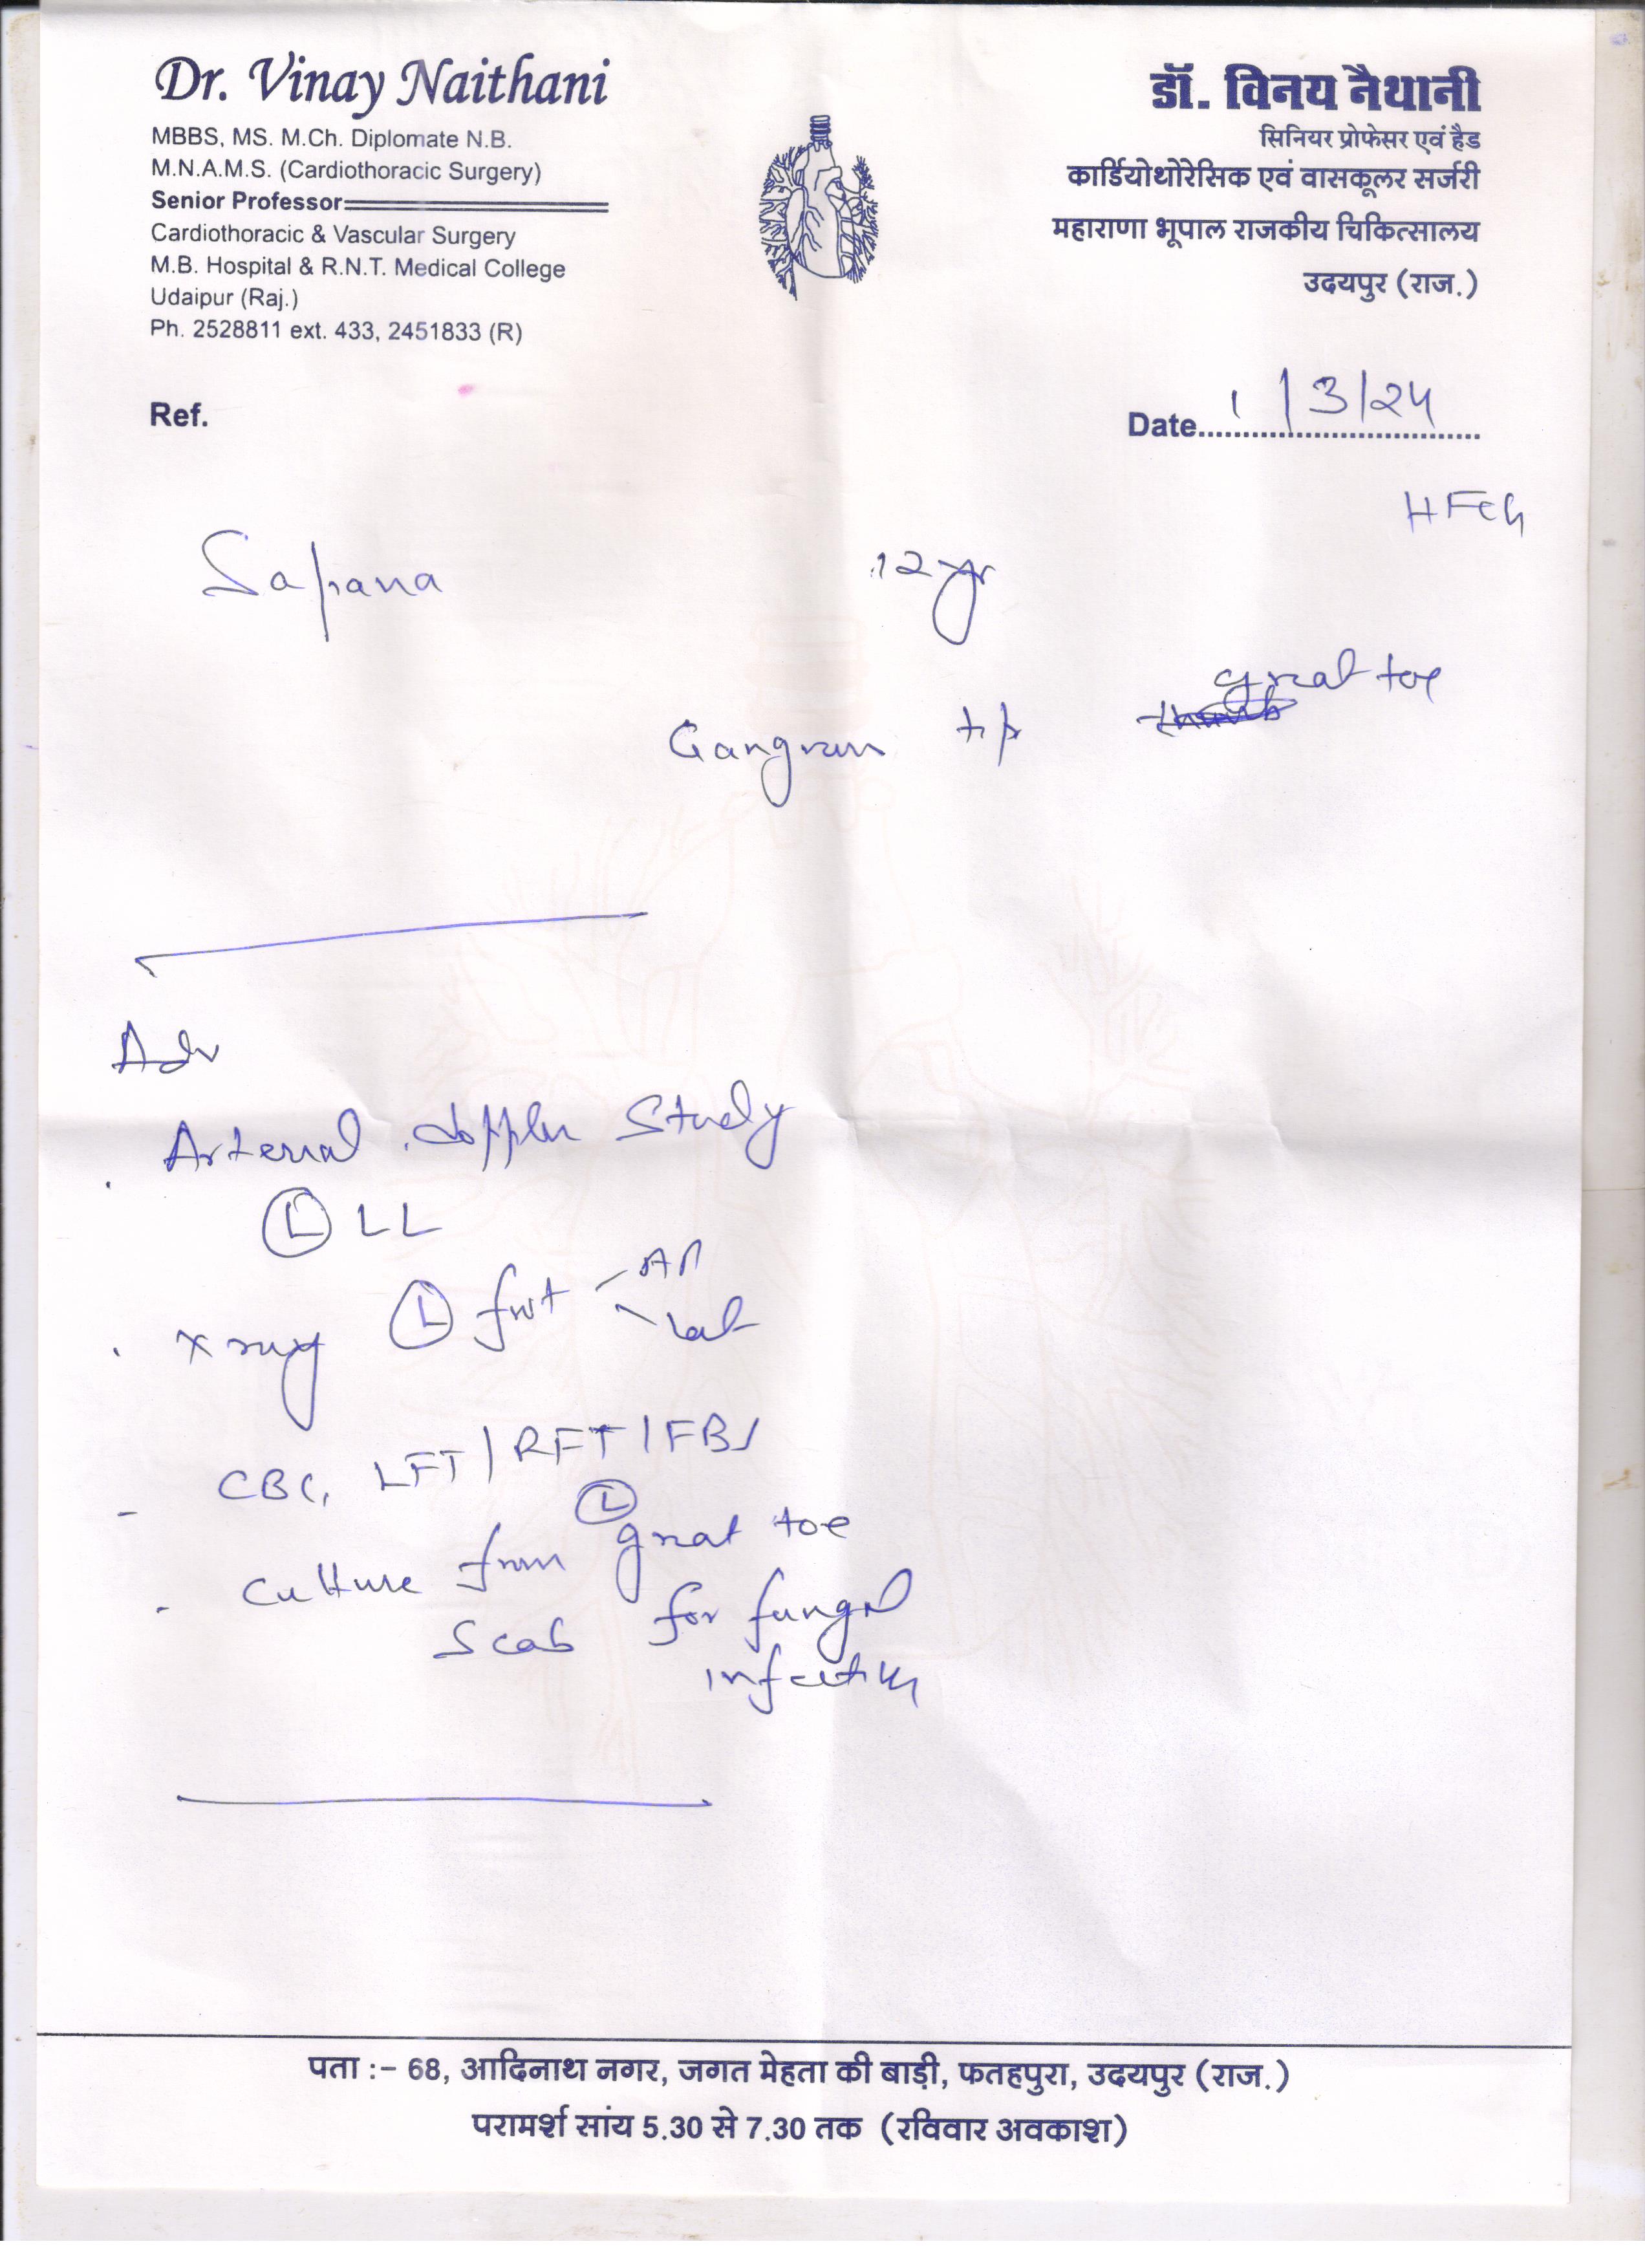 Dr. Vinay Naithani
MBBS, MS. M.Ch. Diplomate N.B.
M.N.A.M.S. (Cardiothoracic Surgery)
Senior Professor
Cardiothoracic & Vascular Surgery
M.B. Hospital & R.N.T. Medical College
Udaipur (Raj.)
Ph. 2528811 ext. 433, 2451833 (R)
डॉ. विनय नैथानी
सिनियर प्रोफेसर एवं हैड
कार्डियोथोरेसिक एवं वासकूलर सर्जरी
महाराणा भूपाल राजकीय चिकित्सालय
उदयपुर (राज.)
Ref.
Date 1/3/24
Sapana 12 yr
great toe
Gangren tip
Adv
Arterial doppler Study
(L) LL
X ray (L) foot AP
lat
CBC, LFT/RFT/FBS
(L)
Culture from great toe
Scab for fungal
infection
पता :- 68, आदिनाथ नगर, जगत मेहता की बाड़ी, फतहपुरा, उदयपुर (राज.)
परामर्श सांय 5.30 से 7.30 तक (रविवार अवकाश)